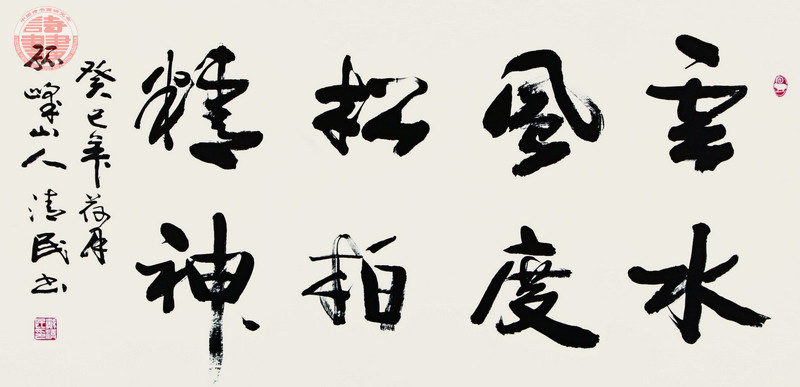 雲水
風度
松柏
精神
癸巳年荷月
孤峰山人清民书